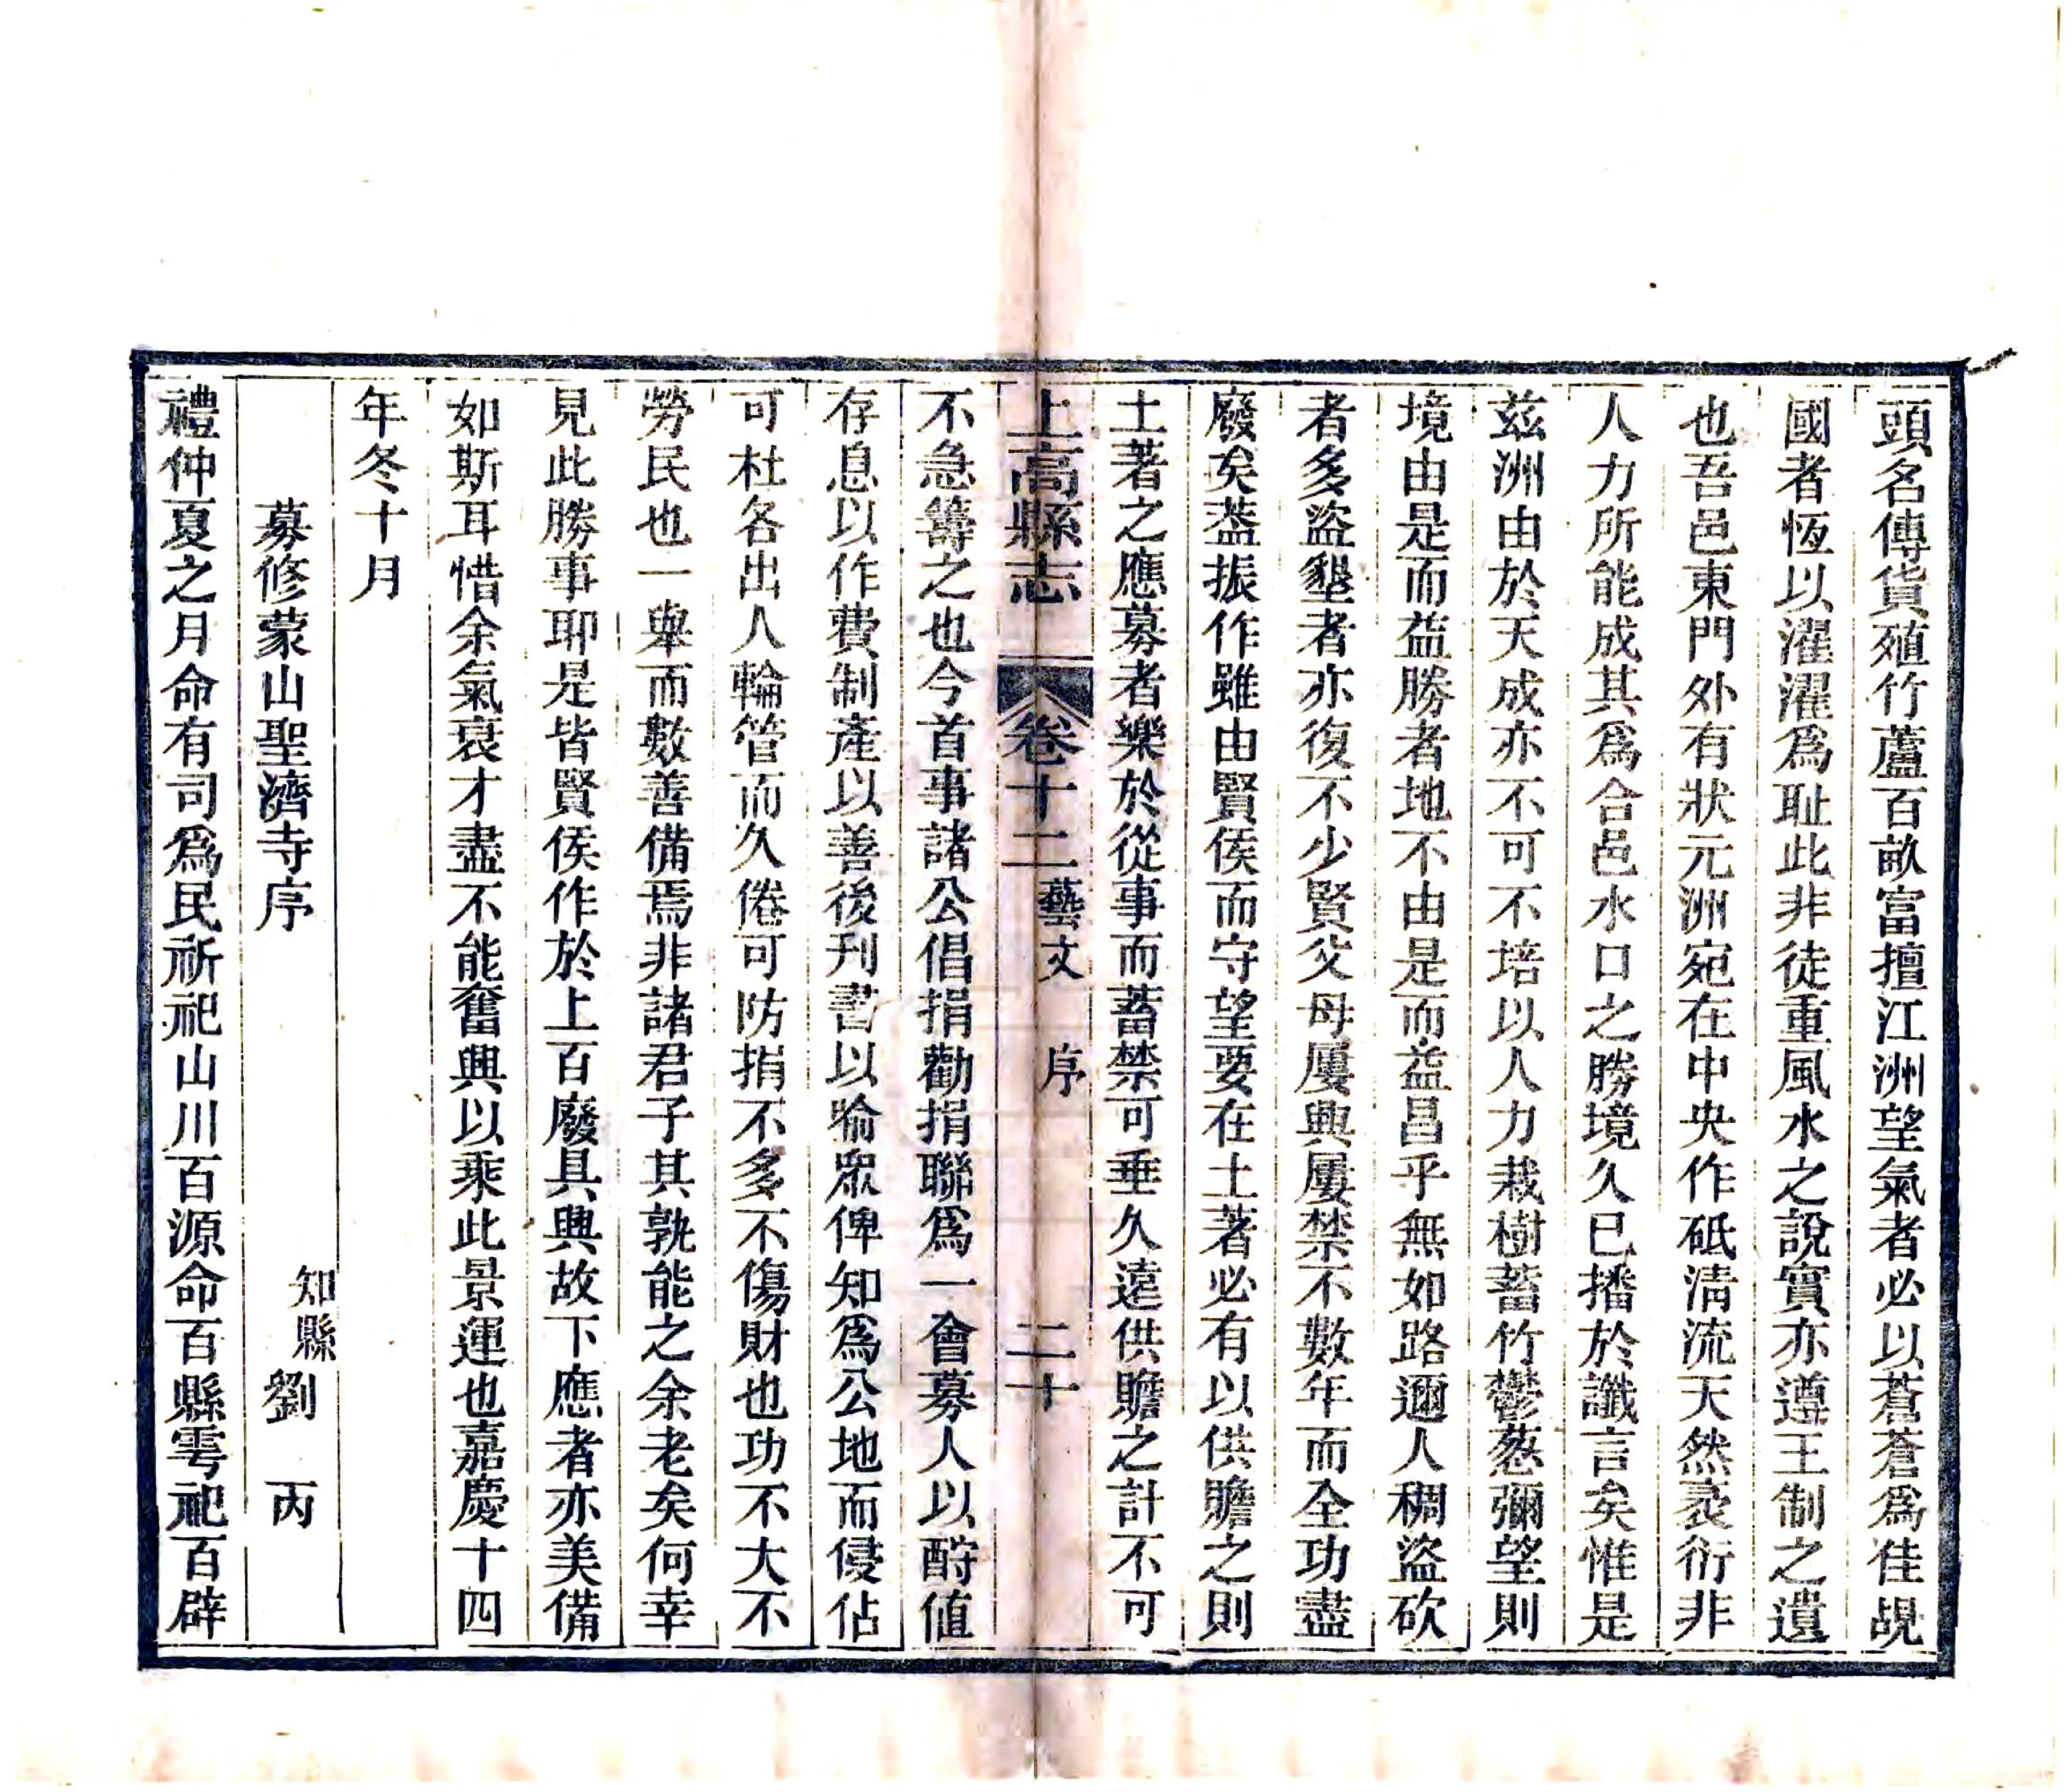 頭名傳貨殖竹蘆百畝富擅江洲望氣者必以蒼蒼爲佳覘
國者恆以濯濯爲耻此非徒重風水之說實亦遵王制之遺
也吾邑東門外有狀元洲宛在中央作砥淸流天然袤衍非
人力所能成其爲合邑水口之勝境久已播於讖言矣惟是
茲洲由於天成亦不可不培以人力栽樹蓄竹鬱葱彌望則
境由是而益勝者地不由是而益昌乎無如路邇人稠盜砍
者多盜墾者亦復不少賢父母屢興屢禁不數年而全功盡
廢矣葢振作雖由賢侯而守望要在土著必有以供贍之則
土著之應募者樂於從事而蓄禁可垂久遠供贍之計不可
上高縣志 卷十二 藝文 序 二十
不急籌之也今首事諸公倡捐勸捐聯爲一會募人以酹値
存息以作費制產以善後刊書以喻眾俾知爲公地而侵佔
可杜各出人輪管而久倦可防捐不多不傷財也功不大不
勞民也一舉而數善備焉非諸君子其孰能之余老矣何幸
見此勝事耶是皆賢侯作於上百廢具興故下應者亦美備
如斯耳惜余氣衰才盡不能奮興以乘此景運也嘉慶十四
年冬十月
募修蒙山聖濟寺序 知縣劉 丙
禮仲夏之月命有司爲民祈祀山川百源命百縣雩祀百辟